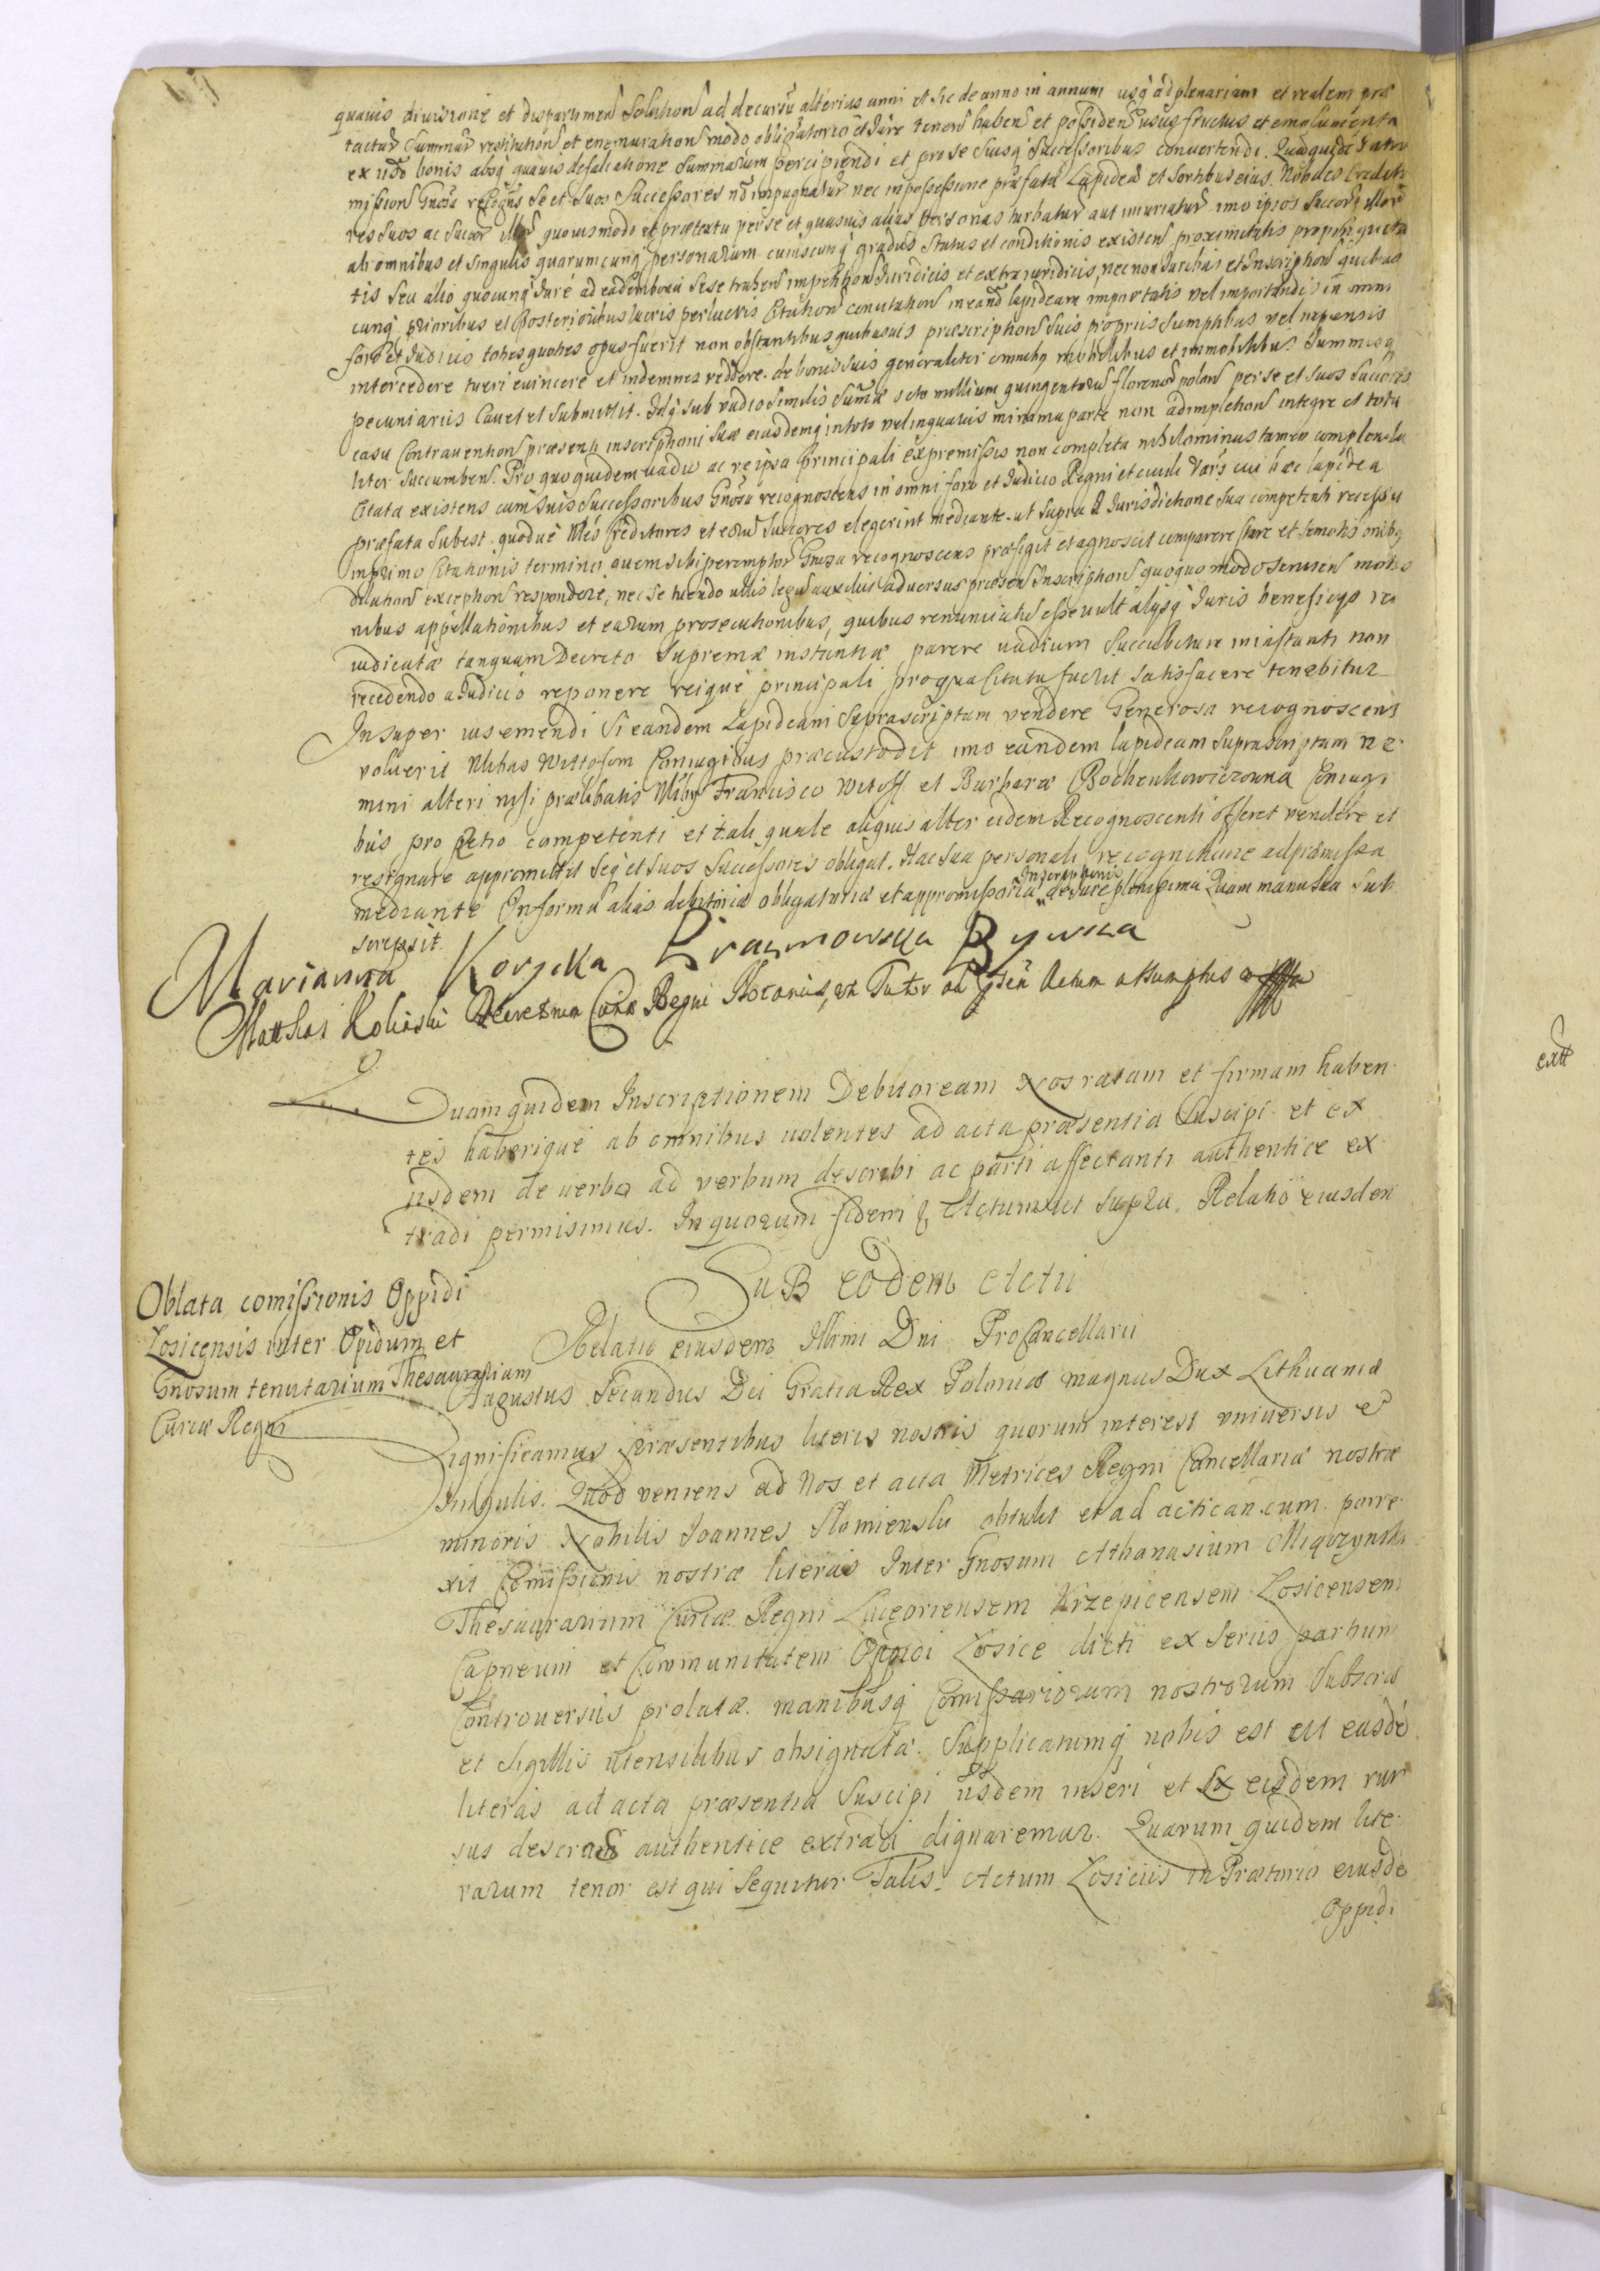 quavis divisione et dispartimen Solution ad decursu alterius anni et sic de anno in annum usq ad plenariam et realem præ
tactar Summar restitution et enumeration modo obligatorio et Jure tenen haben et possiden usus fructus et emolumenta
ex usdo bonis absq quavis defalcatione Summarum percipiendi et pro se suisq Successoribus convertendi. Quosquidē
mission Gnosa recogns se et suos Successores nō impugnatur nec in possessione præfatæ Lapideæ et sortibus eius. Nobiles Credito
res suos ac succor illor quovismodo et prætextu per se et quasvis alias Personas turbatur aut iniuriatur imo ipsos succor illor
ab omnibus et singulis quarumcunq personarum cuiuscunq gradus Status et conditionis existen proximitatis propinquita
tis seu alio quocunq Jure ad eadem bona sese trahen impetition Juridicis et extrajuridicis, nec non Juribus et Inscription quibus
cunq prioribus et Posterioribus lucris perlucris Citation in eand lapideam importatis vel importandis in omni
foro et Judiciis toties quoties opus fuerit non obstantibus quibusvis præscription suis propriis Sumptibus vel impensis
intercedere tueri evincere et indemnes reddere. de bonis suis generaliter omnibq mobilibus et immobilibus Summisq
pecuniariis Cavet et submittit. Idq sub vadio similis Sumæ octo millium quingentoru florenor polon per se et suos succores
casu Contravention præsenti inscriptioni suæ eiusdemq in toto vel in quavis minima parte non adimpletion integre et tota
liter succumben. Pro quo quidem vadio ac re ipsa principali ex premissis non completa nihilominus tamen complenda
Citata existens cum suis successoribus Gnosa recognoscens in omni foro et Judicio Regni et civili Vars cui hæc lapidea
præfata subest. quodve Nles Creditores et eoru Succores elegerint mediante ut supra A Jurisdictione sua competenti recessu
in primo Citationis termino quem sibi peremptor Gnosa recognoscens præfigit et agnoscit comparere stare et semotis onibq
dilation exception respondere, nec se tuendo ullis legu auxiliis adversus præsen Inscription quoquo modo servien motio
nibus appellationibus et earum prosecutionibus, quibus renunciatu esse vult alysq Juris beneficys rei
iudicatæ tanquam Decreto supremæ instantiæ parere vadium succubiture in instanti non
recedendo a Judicio reponere reique principali pro qua citata fuerit satisfacere tenebitur
Insuper ius emendi si eandem Lapideam suprascriptam vendere Generosa recognoscens
voluerit Nlibus Wittofom Coniugibus præcustodit imo eandem lapideam suprascriptam ne
mini alteri nisi prælibatis Nlibq Francisco Witoff et Barbaræ Bochenkowiczowna Coniugi
bus pro Pretio competenti et tali quale aliquis alter eidem Recognoscenti offeret vendere et
resignare appromittit seq et suos successores obligat. Hac sua personali recognitione ad præmissa
mediante In forma alias debitoriæ obligatoriæ et appromissoriæ Inscriptionis de Jure plenissima Quam manu sua sub
scripsit.
Marianna Korycka Brazmowska Bywsza
Matthias Kolinski Decretrum Curiæ Regni Notarius, ut Tutor ad Actum assumptus
Quam quidem Inscriptionem Debitoream Nos ratam et firmam haben
tes haberique ab omnibus volentes ad acta præsentia suscipi et ex
iisdem de verbo ad verbum describi ac parti affectanti authentice ex
tradi permisimus. In quorum fidem & Actum ut supra. Relatio eiusdem
Oblata comissionis Oppidi
Łosicensis inter Opidum et
Gnosum tenutarium Thesaurarium
Curiæ Regni
Sub eodem Actu
Relatio eiusdem Illmi Dni ProCancellarii
Augustus Secundus Dei Gratia Rex Poloniæ magnus Dux Lithuaniæ
Significamus præsentibus literis nostris quorum interest universis et
singulis. Quod veniens ad Nos et acta Metrices Regni Cancellariæ nostræ
minoris Nobilis Joannes Słomienski obtulit et ad acticandum porre
xit Comissionis nostræ literas Inter Gnosum Athanasium Miączynski
Thesaurarium Curiæ Regni Luceoriensem Krzepicensem Łosicensem
Capneum et Communitatem Oppidi Łosice dicti ex seriis partium
Controversiis prolatæ. manibusq Comissariorum nostrorum subscris
et sigillis utensilibus obsignatas. Supplicatumq nobis est ut easdē
literas ad acta præsentia suscipi iisdem inseri et ex eisdem rur
sus describi authentice extradi dignaremur. Quarum quidem lite
rarum tenor est qui sequitur Talis. Actum Łosiciis in Prætorio eiusdē
Oppidi
extt